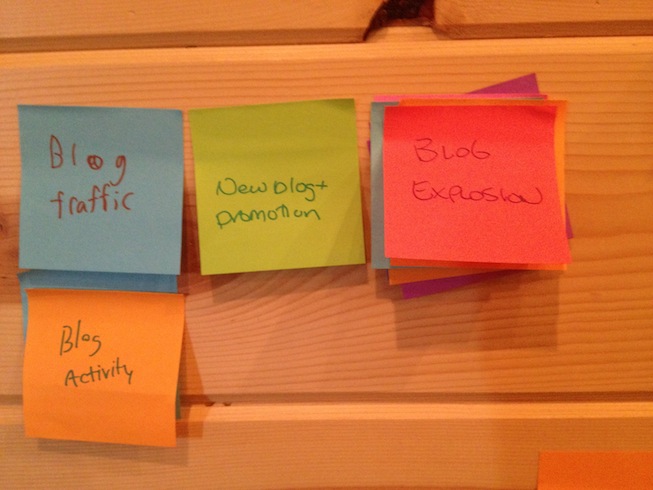 Blog
traffic
New blog +
promotion
BLOG
EXPLOSION
Blog
Activity